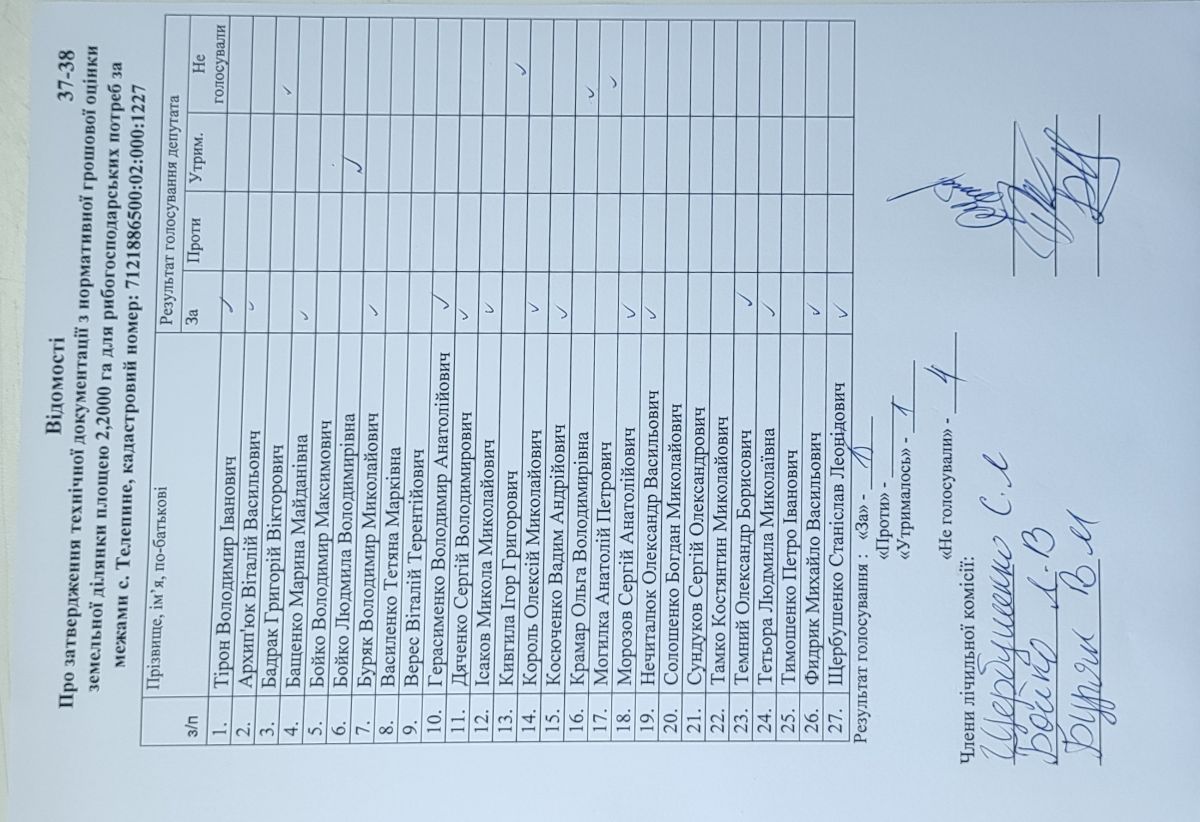 Відомості
Про затвердження технічної документації з нормативної грошової оцінки 37-38
земельної ділянки площею 2,2000 га для рибогосподарських потреб за
межами с. Телепине, кадастровий номер: 7121886500:02:000:1227
Прізвище, ім’я, по-батькові Результат голосування депутата
з/п За Проти Утрим. Не голосували
1. Тірон Володимир Іванович
2. Архип'юк Віталій Васильович
3. Бадрак Григорій Вікторович
4. Бащенко Марина Майданівна
5. Бойко Володимир Максимович
6. Бойко Людмила Володимирівна
7. Буряк Володимир Миколайович
8. Василенко Тетяна Марківна
9. Верес Віталій Терентійович
10. Герасименко Володимир Анатолійович
11. Дяченко Сергій Володимирович
12. Ісаков Микола Миколайович
13. Кивгила Ігор Григорович
14. Король Олексій Миколайович
15. Косюченко Вадим Андрійович
16. Крамар Ольга Володимирівна
17. Могилка Анатолій Петрович
18. Морозов Сергій Анатолійович
19. Нечиталюк Олександр Васильович
20. Солошенко Богдан Миколайович
21. Сундуков Сергій Олександрович
22. Тамко Костянтин Миколайович
23. Темний Олександр Борисович
24. Тетьора Людмила Миколаївна
25. Тимошенко Петро Іванович
26. Фидрик Михайло Васильович
27. Щербушенко Станіслав Леонідович
Результат голосування : «За» -
«Проти» -
«Утрималось» - 1
«Не голосували» - 4
Члени лічильної комісії:
Щербушенко С.Л
Бойко Л.В
Буряк В М